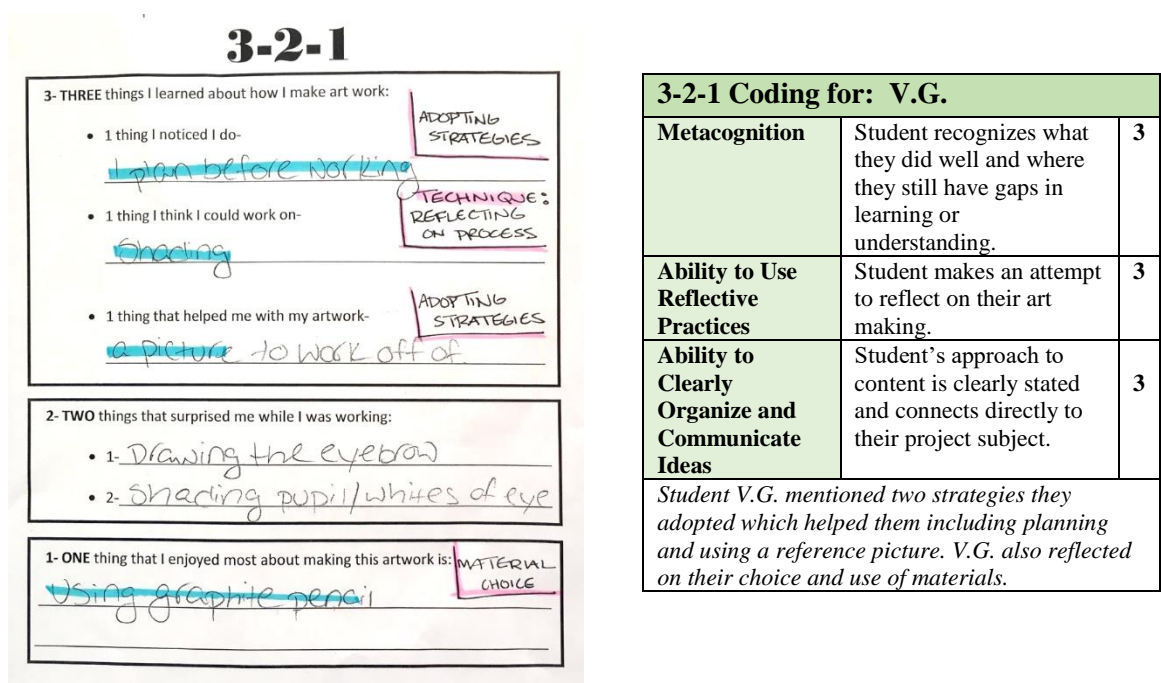 3-2-1
3- THREE things I learned about how I make art work:
ADOPTING
STRATEGIES
• 1 thing I noticed I do-
I plan before working
TECHNIQUE:
REFLECTING
ON PROCESS
• 1 thing I think I could work on-
Shading
ADOPTING
STRATEGIES
• 1 thing that helped me with my artwork-
a picture to work off of.
2- TWO things that surprised me while I was working:
• 1- Drawing the eyebrow
• 2- Shading pupil/whites of eye
1- ONE thing that I enjoyed most about making this artwork is:
MATERIAL
CHOICE
Using graphite pencil
3-2-1 Coding for: V.G.
Metacognition
Student recognizes what
they did well and where
they still have gaps in
learning or
understanding.
3
Ability to Use
Reflective
Practices
Student makes an attempt
to reflect on their art
making.
3
Ability to
Clearly
Organize and
Communicate
Ideas
Student’s approach to
content is clearly stated
and connects directly to
their project subject.
3
Student V.G. mentioned two strategies they
adopted which helped them including planning
and using a reference picture. V.G. also reflected
on their choice and use of materials.